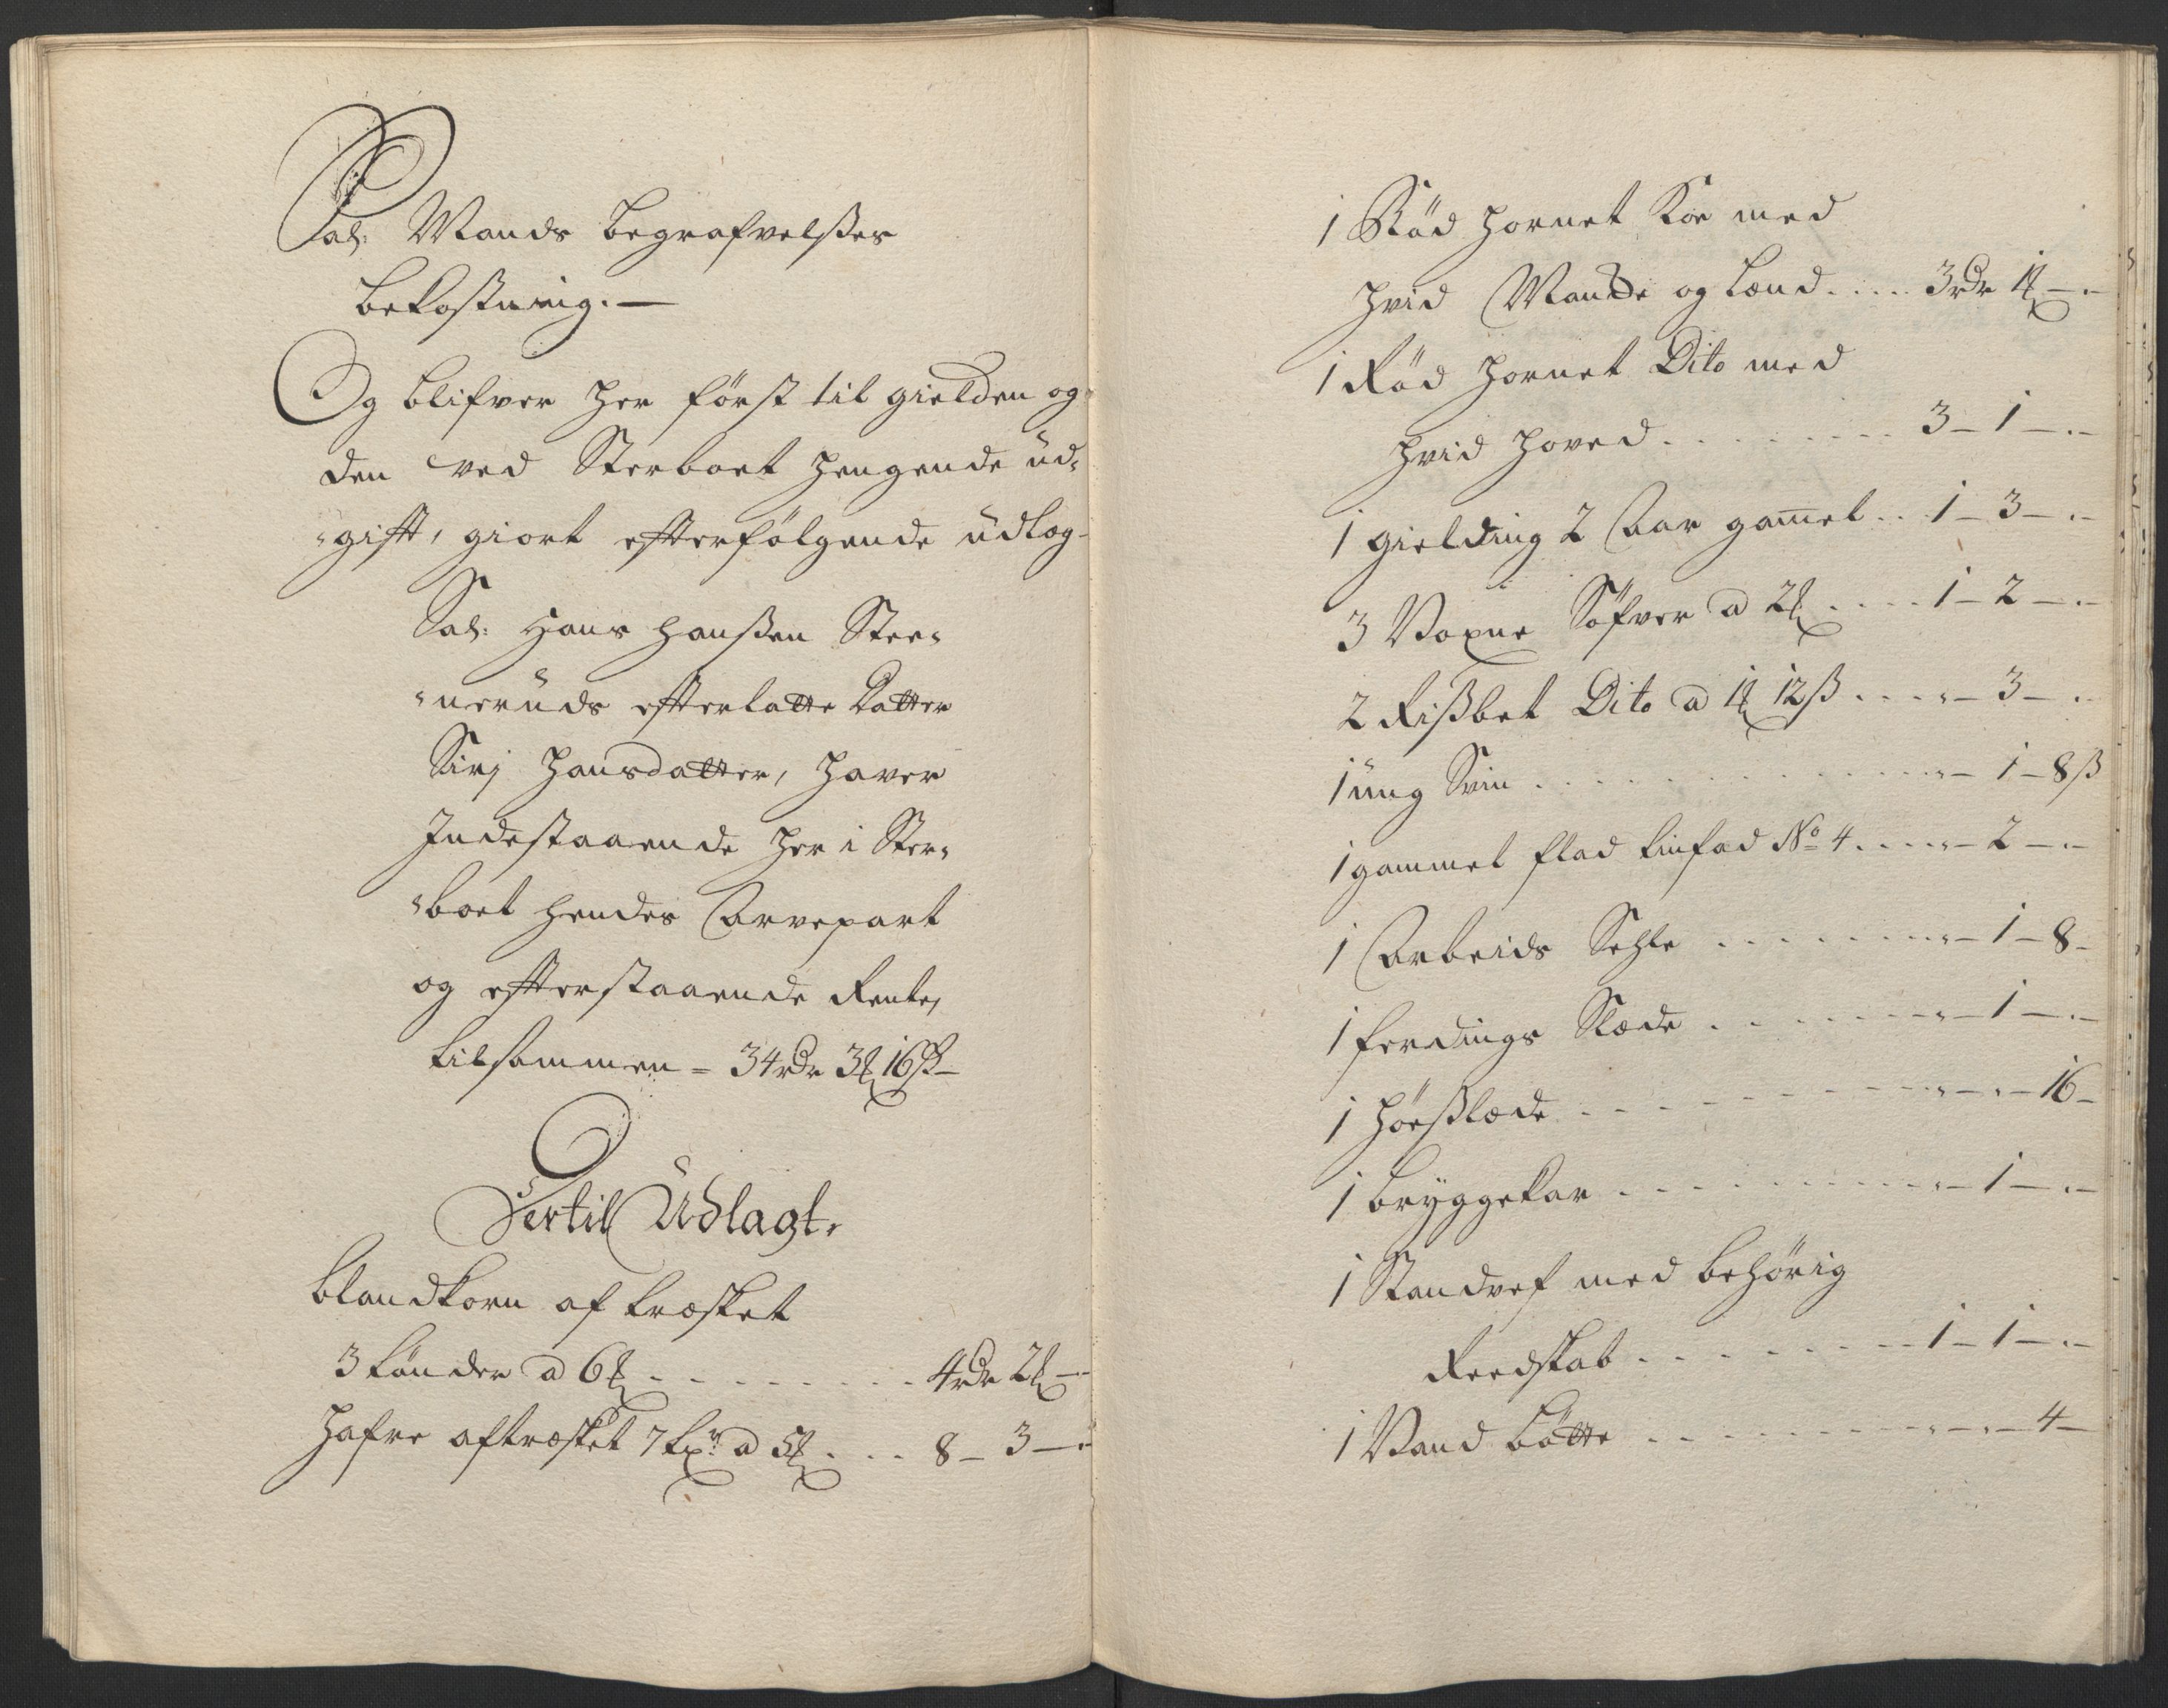 Sal: Mands begrafvelßes
bekostning. —
Og blifver her först til gielden og
den ved Sterboet hengende üd-
gift, giort efterfölgende üdlog-
Sal: Hans Hanßen Stee-
nerüds efterlatte Datter
Siri Hansdatter, haver
Indestaaende her i Ster-
boet hendes Arvepart
og efterstaaende Rente,
tilsammen = 34 rdr 3 16 ß –
Hertil Udlagt.
Blandkorn aftræsket
3 tönder a 6 . . . . . . . . 4 rdr 2 –
Hafre aftræsket 7 a 5 . . . . 8 – 3 – .
1 Röd hornet Koe med
hvid og Lænd . . . . 3 rdr 1 – . –
1 Röd hornet Dito med
hvid hoved . . . . . . . . . 3 – 1 – . –
1 gielding 2 Aar gamel . . 1 – 3 – . –
3 Voxne Söfver a 2 . . . . 1 – 2 – . –
2 Rißbet Dito a 1 12 ß . . . . – 3 – . –
1 üng Svin . . . . . . . . . . . – 1 – 8 ß
1 gammel flad tinfad No 4 . . . . – 2 – . –
1 Arbeids Sehle . . . . . . . . – 1 – 8 –
1 ferdings Slæde . . . . . . . . – 1 – . –
1 höeßlæde . . . . . . . . . – . – 16 –
1 bryggekar . . . . . . . . . . – 1 – . –
1 Standvef med behörig
Reedskab . . . . . . . . 1 – 1 – . –
1 Vand bötte . . . . . . . . . – . – 4 –